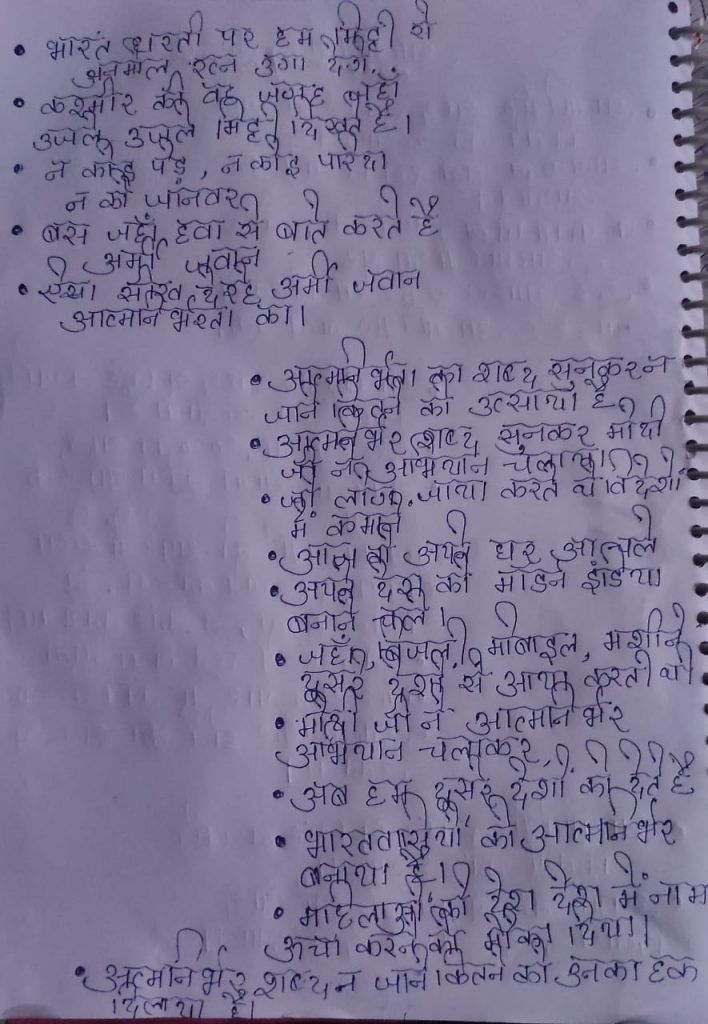 • भारत धरती पर हम मिट्टी से
अनमोल रत्न उगा देंगे।
• कश्मीर की वह जगह जहाँ
उजले उजले मिट्टी दिखते है।
• न कोई पेड़, न कोई परिंदा
न को जानवर
• बस जहाँ हवा से बाते करते है
अर्मी जवान
• ऐसा सबूत दे रहे अर्मी जवान
आत्मनिर्भरता का।
• आत्मनिर्भरता का शब्द सुनकर न
जाने कितने को उत्साया है
• आत्मनिर्भर शब्द सुनकर मोदी
जी ने अभियान चलाया।
• जो लोग जाया करते थे विदेशो
में कमाने
• आज वो अपने घर आ चले
• अपने देश को मॉडर्न इंडिया
बनाने चले।
• जहाँ बिजली, मोबाइल, मशीने
दूसरे देशो से आया करती थी
• मोदी जी ने आत्मनिर्भर
अभियान चलाकर,
• अब हम दूसरे देशों को देते है
• भारतवासियों को आत्मनिर्भर
बनाया है।
• महिलाओं को देश देश में नाम
ऊचा करने का मौका दिया।
• आत्मनिर्भर शब्द न जाने कितने को उनका हक
दिलाया है।